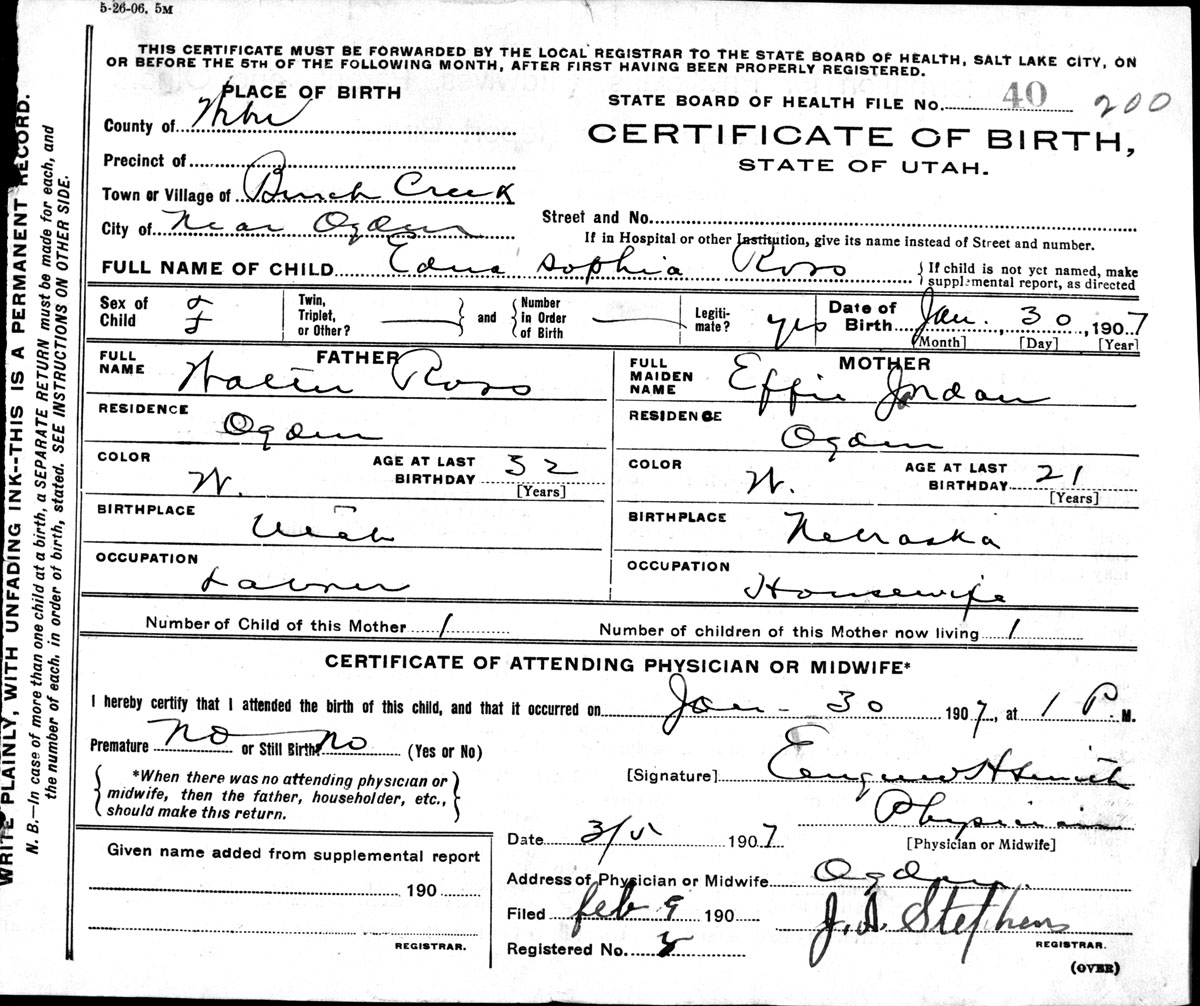 5-26-06. 5M
THIS CERTIFICATE MUST BE FORWARDED BY THE LOCAL REGISTRAR TO THE STATE BOARD OF HEALTH, SALT LAKE CITY, ON
OR BEFORE THE 5TH OF THE FOLLOWING MONTH, AFTER FIRST HAVING BEEN PROPERLY REGISTERED.
PLACE OF BIRTH
STATE BOARD OF HEALTH FILE No. 40 200
County of
CERTIFICATE OF BIRTH,
STATE OF UTAH.
Precinct of
Town or Village of Burch Creek
City of Near Ogden
Street and No.
If in Hospital or other Institution, give its name instead of Street and number.
FULL NAME OF CHILD Edna Sophia Ross
If child is not yet named, make
supplemental report, as directed
Sex of Child F
Twin, Triplet, or Other? and Number in Order of Birth
Legiti-mate? yes
Date of Birth Jan. 30, 1907
[Month] [Day] [Year]
FATHER
FULL NAME Walter Ross
RESIDENCE
Ogden
COLOR W. AGE AT LAST BIRTHDAY 32
[Years]
BIRTHPLACE
Utah
OCCUPATION
Laborer
MOTHER
FULL MAIDEN NAME Effie Jordan
RESIDENCE
Ogden
COLOR W. AGE AT LAST BIRTHDAY 21
[Years]
BIRTHPLACE
Nebraska
OCCUPATION
Housewife
Number of Child of this Mother 1 Number of children of this Mother now living 1
CERTIFICATE OF ATTENDING PHYSICIAN OR MIDWIFE*
I hereby certify that I attended the birth of this child, and that it occurred on Jan - 30 1907, at 1 P. M.
Premature no or Still Birth? no (Yes or No)
*When there was no attending physician or
midwife, then the father, householder, etc.,
should make this return.
[Signature] H Smith
Physician
[Physician or Midwife]
Date 3/ 1907
Given name added from supplemental report
190
REGISTRAR.
Address of Physician or Midwife Ogden
Filed feb 9 190
J. Stephens
REGISTRAR.
Registered No.
(OVER)
WRITE PLAINLY, WITH UNFADING INK--THIS IS A PERMANENT RECORD.
N. B.—In case of more than one child at a birth, a SEPARATE RETURN must be made for each, and
the number of each, in order of birth, stated. SEE INSTRUCTIONS ON OTHER SIDE.